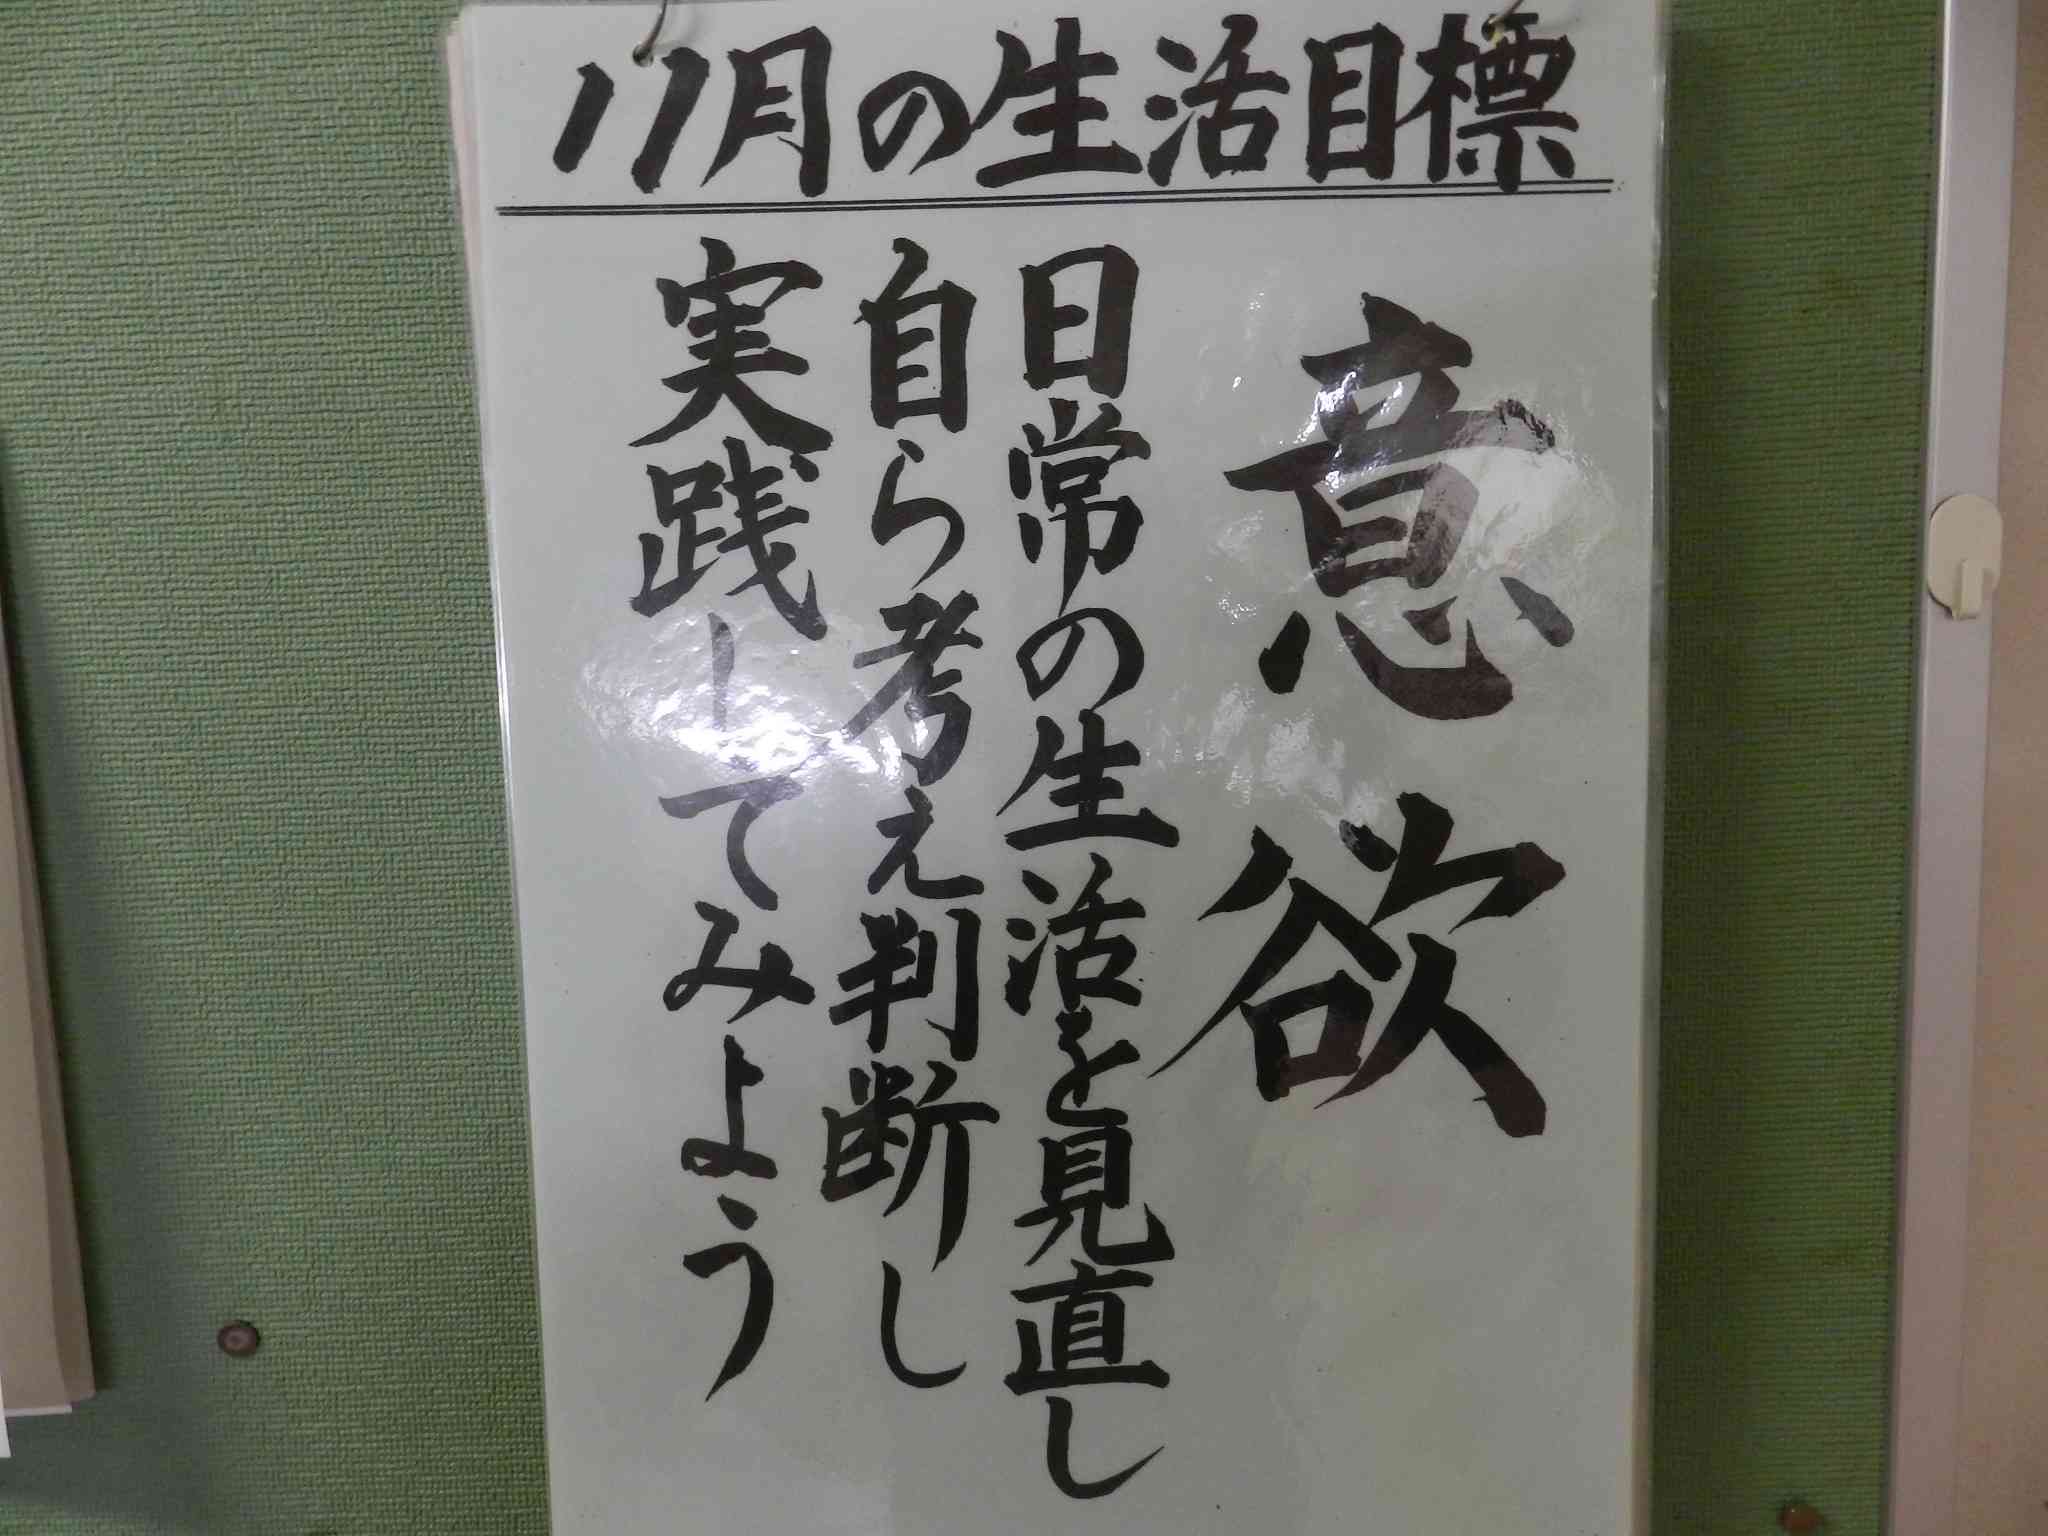 11月の生活目標
意欲
日常の生活を見直し
自ら考え判断し
実践してみよう